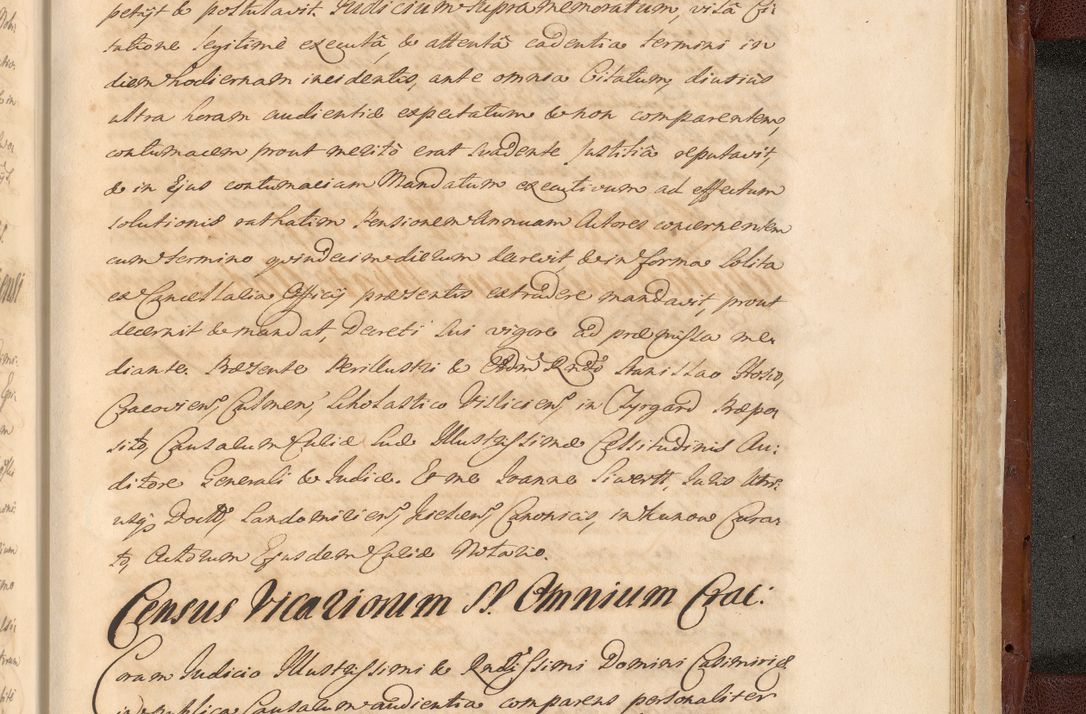 petijt & postulavit. Judicium supramemoratum, visâ Ci-
tatione legitimè executâ, & attentâ cadentia termini in
diem hodiernam incidentis, ante omnia Citatum, diutius
ultra horam audientiæ expectatum & non comparentem,
contumacem prout meritò erat suadente Justitiâ reputavit,
& in Ejus contumaciam Mandatum executivum ad effectum
solutionis rathatim Pensionem Annuam Actores concernentem
cum termino quindecim dierum decrevit, & in forma solita
ex Cancellaria Officij præsentis extradere mandavit, prout
decernit & mandat, Decreti sui vigore ad præmissa me-
diante. Præsente Perillustri & Adm Rndo Stanislao Hosio,
Cracoviens, Culmen, Scholastico Visliciens, in Chrgard Præpo-
sito, Causarum Curiæ Suæ Illustrissimæ Celsitudinis Au-
ditore Generali & Judice. Et me Joanne Siwertt, Juris Utri-
usq Doctt, Sandomiriens, Kielcens Canonicis, in Kunow Cura-
to, Actorum Ejusdem Curiæ Notario.
Census Vicariorum SS. Omnium Crac:
Coram Judicio Illustrissimi & Rndissimi Domini Casimiri &
in publica Causarum audientia comparens personaliter